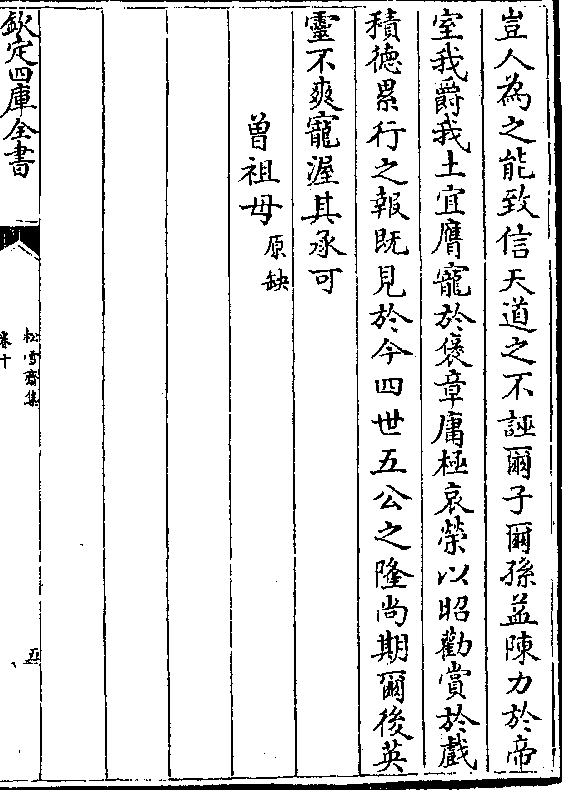 豈人為之能致信天道之不誣爾子爾孫益陳力於帝
室我爵我土宜膺寵於褒章庸極哀榮以昭勸賞於戲
積德累行之報既見於今四世五公之隆尚期爾後英
靈不爽寵渥其承可
曽祖母原缺
欽定四庫全書
松雪齋集
卷十
五